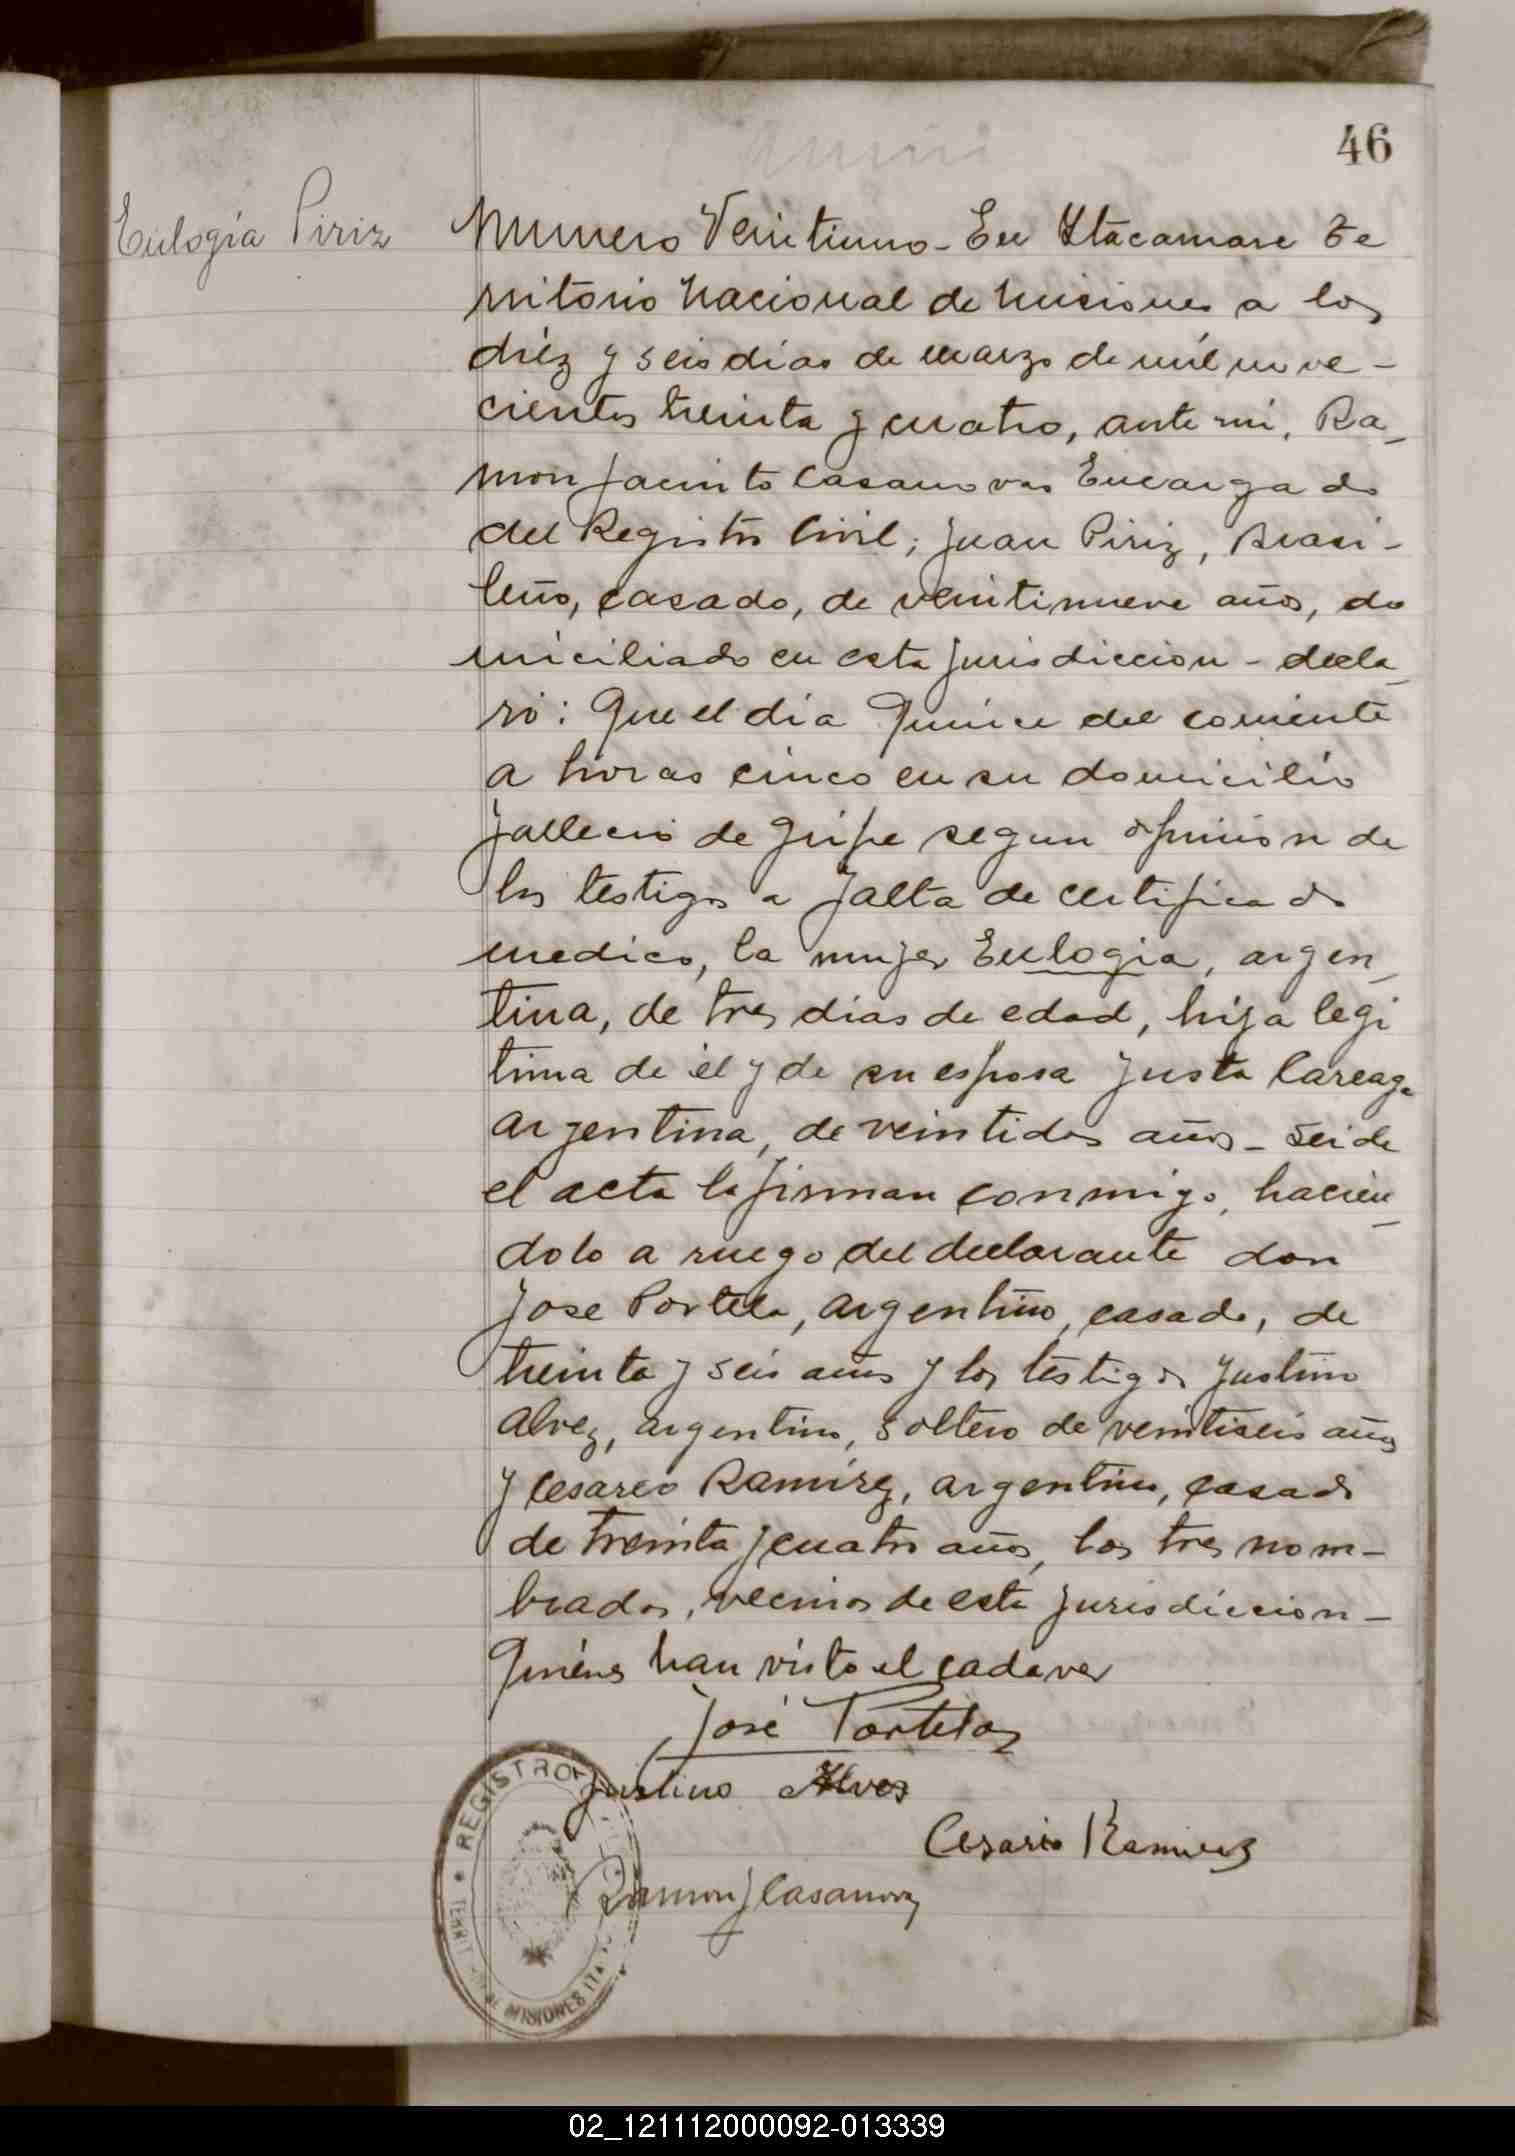 46
Eulogia Piriz
Numero Veintiuno - En Itacaruare Te
rritorio Nacional de Misiones a los
diéz y seis dias de marzo de mil nove-
cientos treinta y cuatro, ante mi, Ra-
mon Jacinto Casanovas Encargado
del Registro Civil; Juan Piriz, Brasi-
leño, casado, de veintinueve años, do
miciliado en esta jurisdiccion - decla-
ró: Que el dia Quince del corriente
a horas cinco en su domicilio
fallecio de Gripe segun opinion de
los testigos a falta de certificado
medico, la mujer Eulogia, argen-
tina, de tres dias de edad, hija legi
tima de él y de su esposa Justa Careaga
argentina, de veintidos años - Leida
el acta la firman conmigo, hacien-
dolo a ruego del declarante don
Jose Portela, argentino, casado, de
treinta y seis años y los testigos Justino
Alvez, argentino, soltero de veintiseis años
y Cesareo Ramirez, argentino, casado
de treinta y cuatro años, los tres nom-
brados, vecinos de esta jurisdiccion -
Quiénes han visto el cadaver
José Portela
Justino Alves
Cesario Ramirez
Ramon J Casanova
REGISTRO
MISIONES
02_121112000092-013339